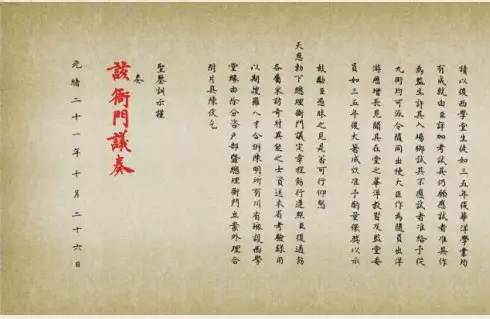 請以後西學堂生徒如三五年後華洋學業均
有成就由臣詳加考試其仍願應試者准其作
為監生許其入場鄉試其不應試者准給予從
九銜均可派令隨同出使大臣作為隨員出洋
游歷增長見聞其在堂之華洋教習及監堂委
員如三五年後大著成效准予酌量保獎以示
鼓勵臣愚昧之見是否可行仰懇
天恩勅下總理衙門議定章程飭行遵照臣後通飭
各屬采訪奇材異能之士資送來省考驗錄用
以期搜羅人才合併陳明所有川省擬設西學
堂緣由除分咨戶部暨總理衙門立案外理合
附片具陳伏乞
聖鑒訓示謹
奏
該衙門議奏
光緒二十一年十月二十六日